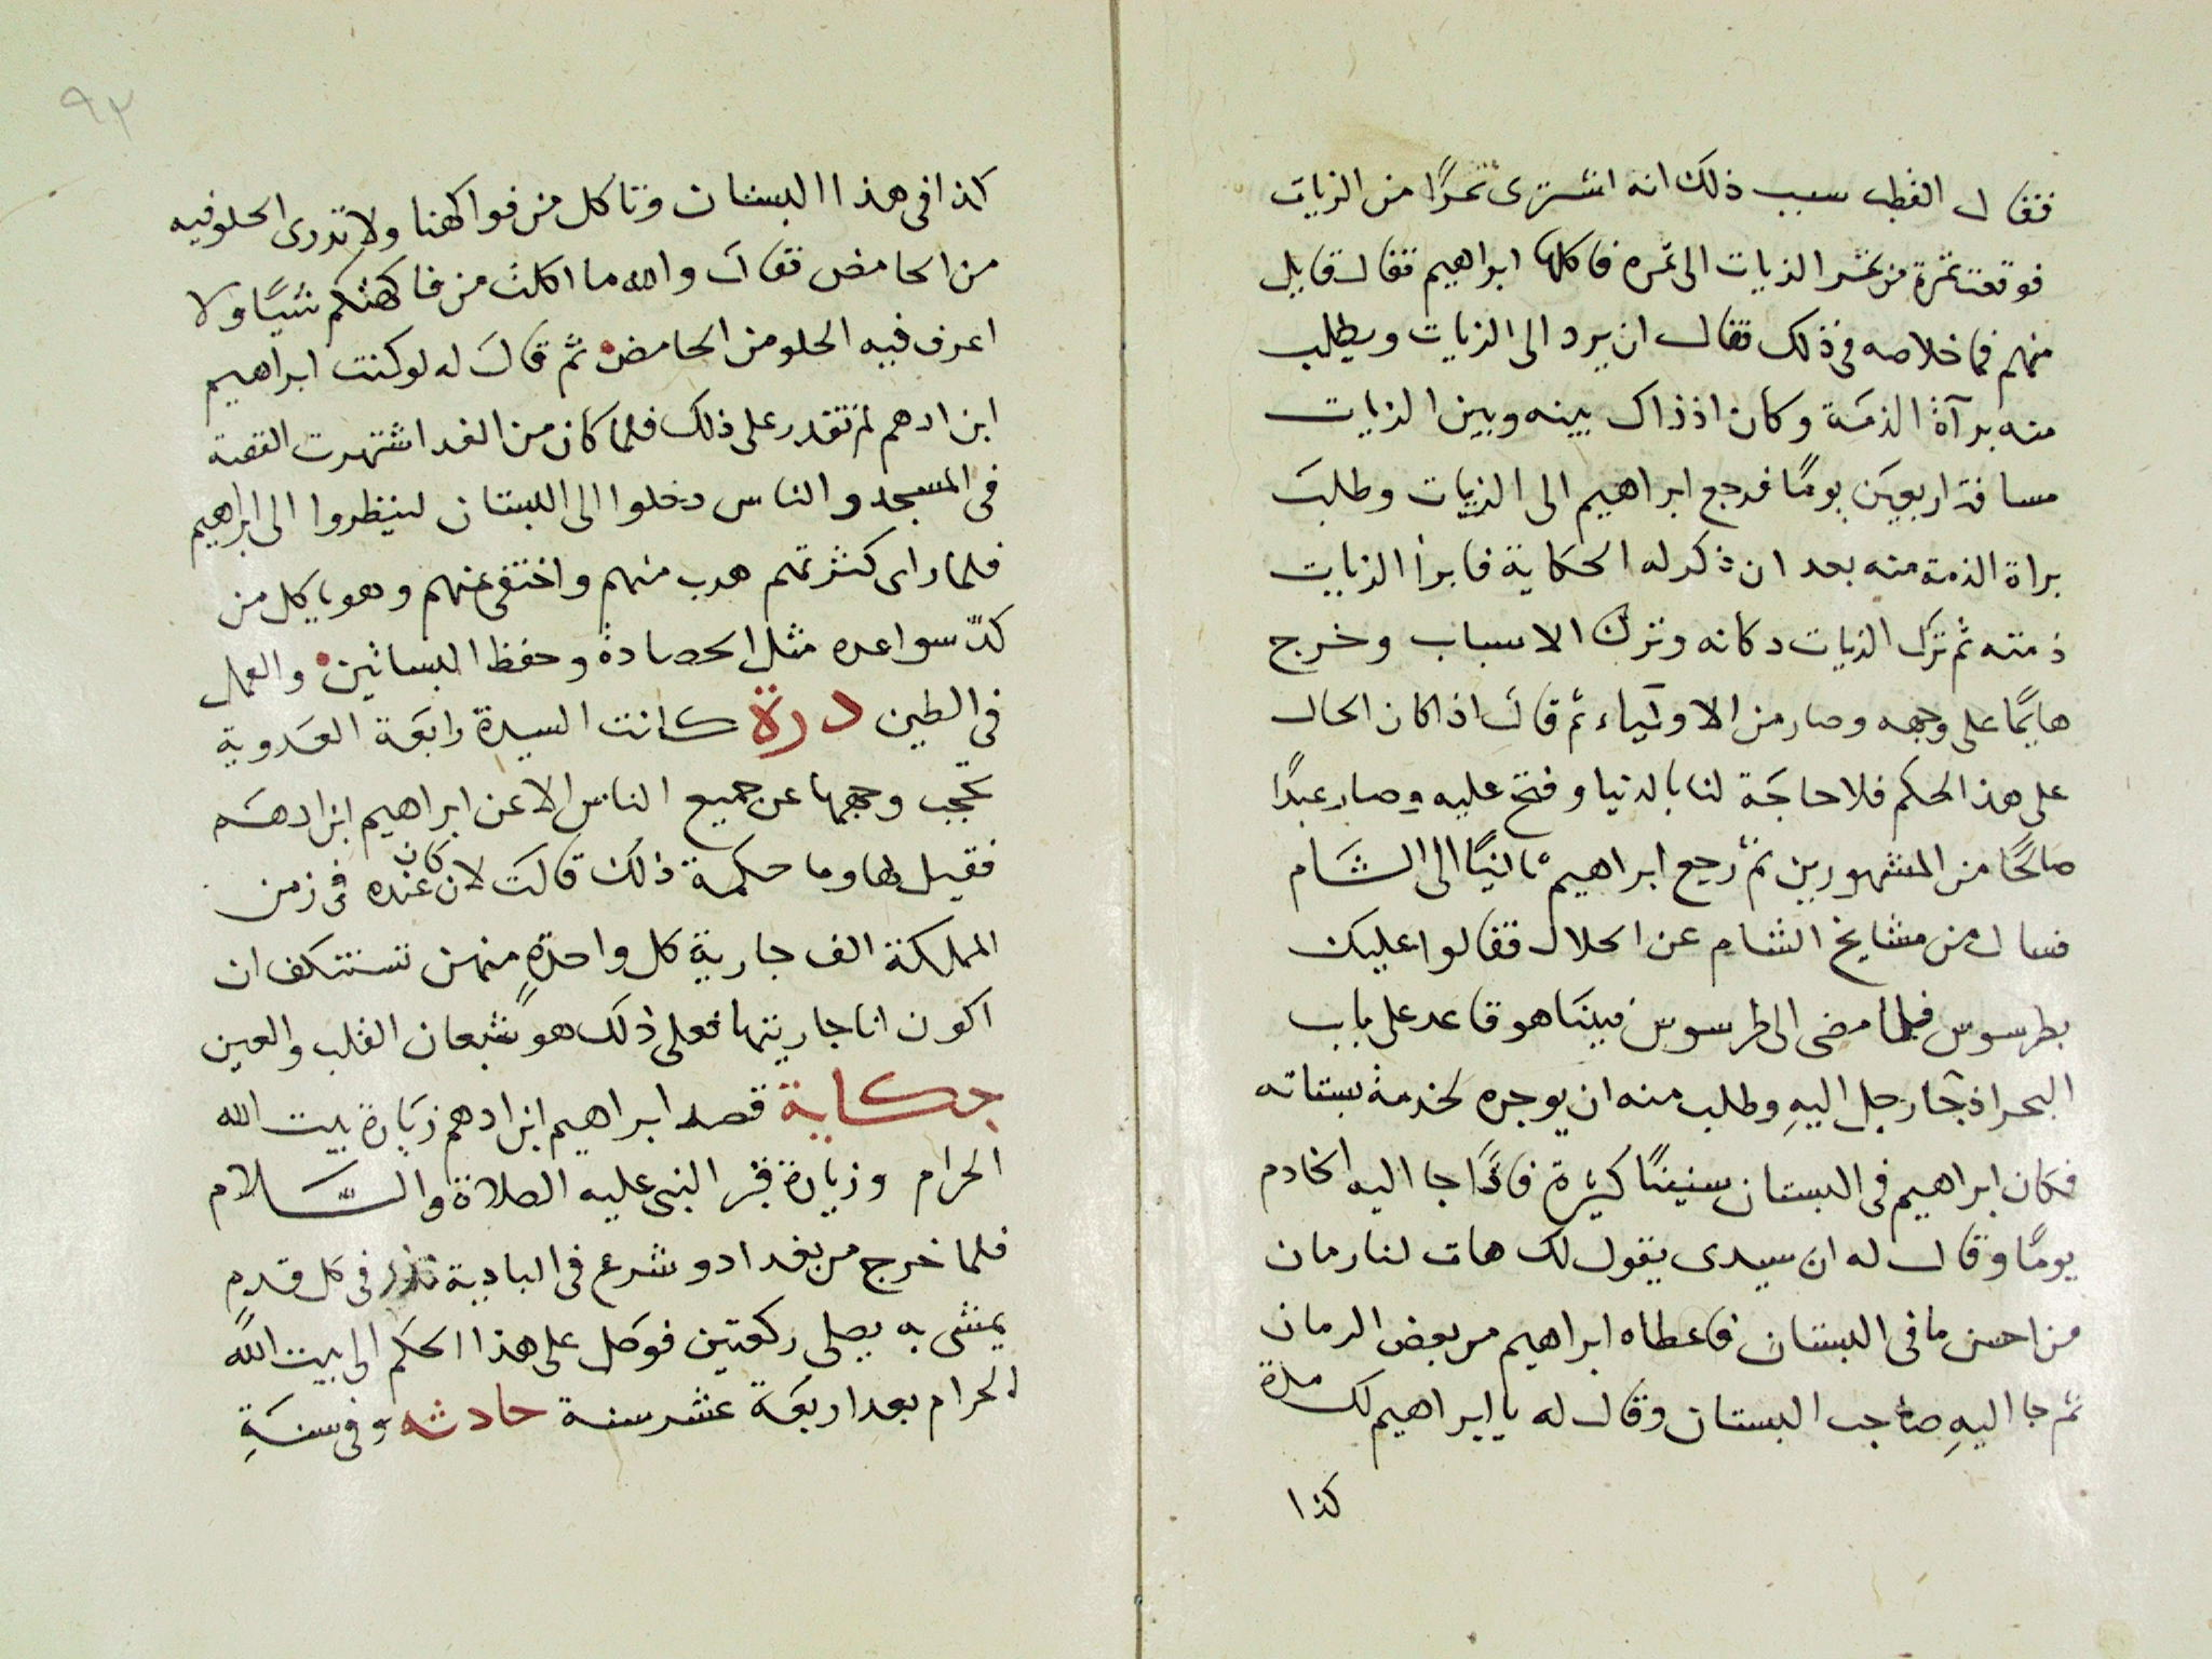 فقال القطب سبب ذلك انه اشترى تمرًا من الزيات
فوقعت تمرة من تمر الزيات الى تمره فاكلها ابراهيم فقال قايل
منهم فما خلاصه فى ذلك فقال ان يرد الى الزيات ويطلب
منه برآة الذمَة وكان اذ ذاك بينه وبين الزيات
مسافة اربعين يومًا فرجع ابراهيم الى الزيات وطلبَ
براة الذمة منه بعد ان ذكر له الحكاية فابرأ الزيات
ذمته ثم ترك الزيات دكانه وترك الاسباب وخرج
هايمًا على وجهه وصار من الاولياء ثم قال اذا كان الحال
على هذ الحكم فلا حاجَة لنا بالدنيا وفتح عليه وصار عبدًا
صالحًا من المشهورين ثم رجع ابراهيم ثانيًا الى الشام
فسال من مشايخ الشام عن الحلال فقالوا عليك
بطرسوس فلما مضى الى طرسوس فبينَا هو قاعد على باب
البحر اذ جَا رجل اليهِ وطلب منه ان يوجره لخدمة بستانه
فكان ابراهيم فى البستان سنينًا كثيرة فاذَا جا اليه الخادم
يومًا وقال له ان سيدى يقول لك هات لنا رمان
من احسن ما فى البستان فاعطاه ابراهيم من بعض الرمان
ثم جا اليهِ صاحب البستان وقال له يا ابراهيم لك مدة
كذا
٩٢
كذا فى هذا البستان وتاكل من فواكهنا ولا تدرى الحلو فيه
من الحامض فقال والله ما اكلت من فاكهتكم شيًا ولا
اعرف فيه الحلو من الحامض ثم قالَ له لو كنت ابراهيم
ابن ادهم لم تقدر على ذلك فلما كان من الغد اشتهرت القصة
فى المسجد والناس دخلوا الى البستان لينظروا الى ابراهيم
فلما راى كثرتهم هرب منهم واختفى عنهم وهو ياكل من
كدّ سواعده مثل الحصادة وحفظ البساتين والعمل
فى الطين درة كانت السيدة رابعَة العَدوية
تحجب وجهها عن جميع الناس الا عن ابراهيم ابن ادهَم
فقيل لها وما حكمة ذلك قالَت لان كان عنده فى زمن
المملكة الف جارية كل واحدةٍ منهن تستنكف ان
اكون انا جاريتها فعلى ذلك هو شبعان القلب والعين
حكاية قصد ابراهيم ابن ادهم زيَارة بيت الله
الحرام وزيارة قبر النبى عليه الصلاة والسَّلام
فلما خرج من بغداد وشرع فى البادية نذر فى كل قدمٍ
يمشى به يصلى ركعتين فوصَل على هذا الحكم الى بيت الله
الحرام بعد اربعَة عشر سنة حادثه وفى سنَةِ